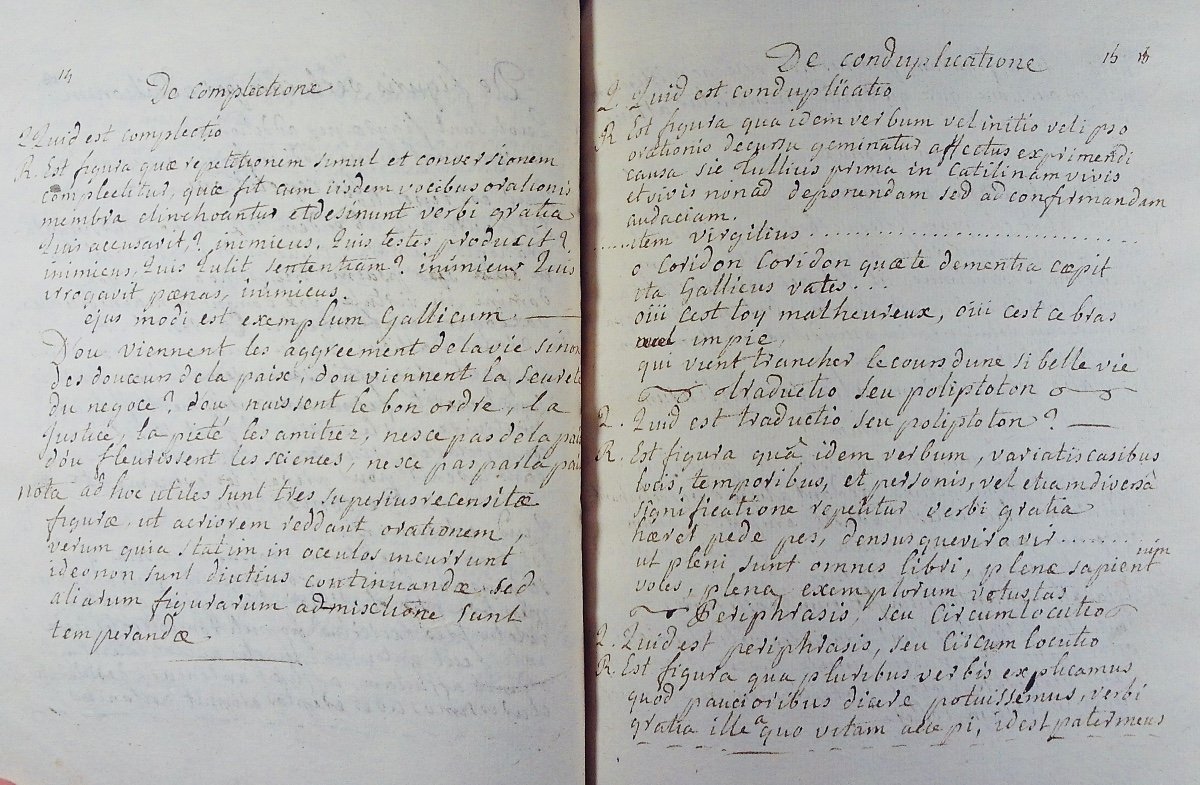 De complectione
Q Quid est complectio
R. Est figura quæ repetitionem simul et conversionem
complectitur, quæ fit cum iisdem vocibus orationis
membra et inchoantur et desinunt verbi gratia
Quis accusavit? inimicus, Quis testes produxit?
inimicus, Quis tulit sententiam? inimicus Quis
irrogavit pœnas, inimicus
ejus modi est exemplum Gallicum.
D'ou viennent les aggreement de la vie sinon
des douceurs de la paix, dou viennent la seureté
du negoce? dou naissent le bon ordre, la
Justice, la pieté les amitiez, nesce pas de la paix
dóu fleurissent les sciences, nesce pas par la paix
nota ad hoc utiles sunt tres superius recensitæ
figuræ, ut acriorem reddant orationem,
verum quia statim in oculos incurrunt
ideo non sunt diutius continuandæ, sed
aliarum figurarum admisctione sunt
temperandæ.
De conduplicatione 15
Q Quid est conduplicatio
R Est figura qua idem verbum vel initio vel ipso
orationis decursu geminatur affectus exprimendi
causa sic Tullius prima in Catilinam vivis
et vivis non ad deponendam sed ad confirmandam
audaciam.
item virgilius
o Coridon Coridon quæ te dementia cæpit
ita Gallicus vates...
oui cest toy malheureux, oui cest ce bras
impie,
qui vient trancher le cours dune si belle vie
traductio seu poliptoton
Q. Quid est traductio seu poliptoton?
R. Est figura quâ idem verbum, variatis casibus
locis, temporibus, et personis, vel etiam diversâ
significatione repetitur verbi gratia
hæret pede pes, densusque viro vir
ut pleni sunt omnes libri, plenæ sapientium
voces, plena exemplorum vetustas
Periphrasis, seu Circumlocutio
Q. Quid est periphrasis, seu Circumlocutio
R. Est figura qua pluribus verbis explicamus
quod paucioribus dicere potuissemus, verbi
gratia ille a quo vitam accepi, id est pater meus